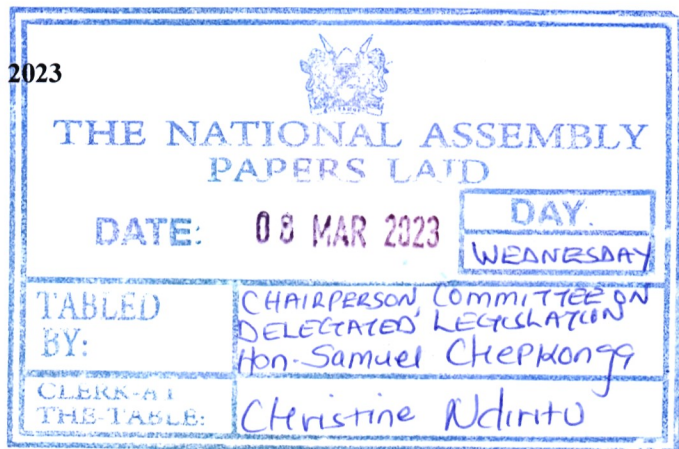 2023
THE NATIONAL ASSEMBLY
PAPERS LAID
DATE: 08 MAR 2023
DAY.
WEDNESDAY
TABLED BY:
CHAIRPERSON, COMMITTEE ON
DELEGATED LEGISLATION
Hon. Samuel Chepkonga
CLERK-AT
THE-TABLE:
Christine Ndiritu